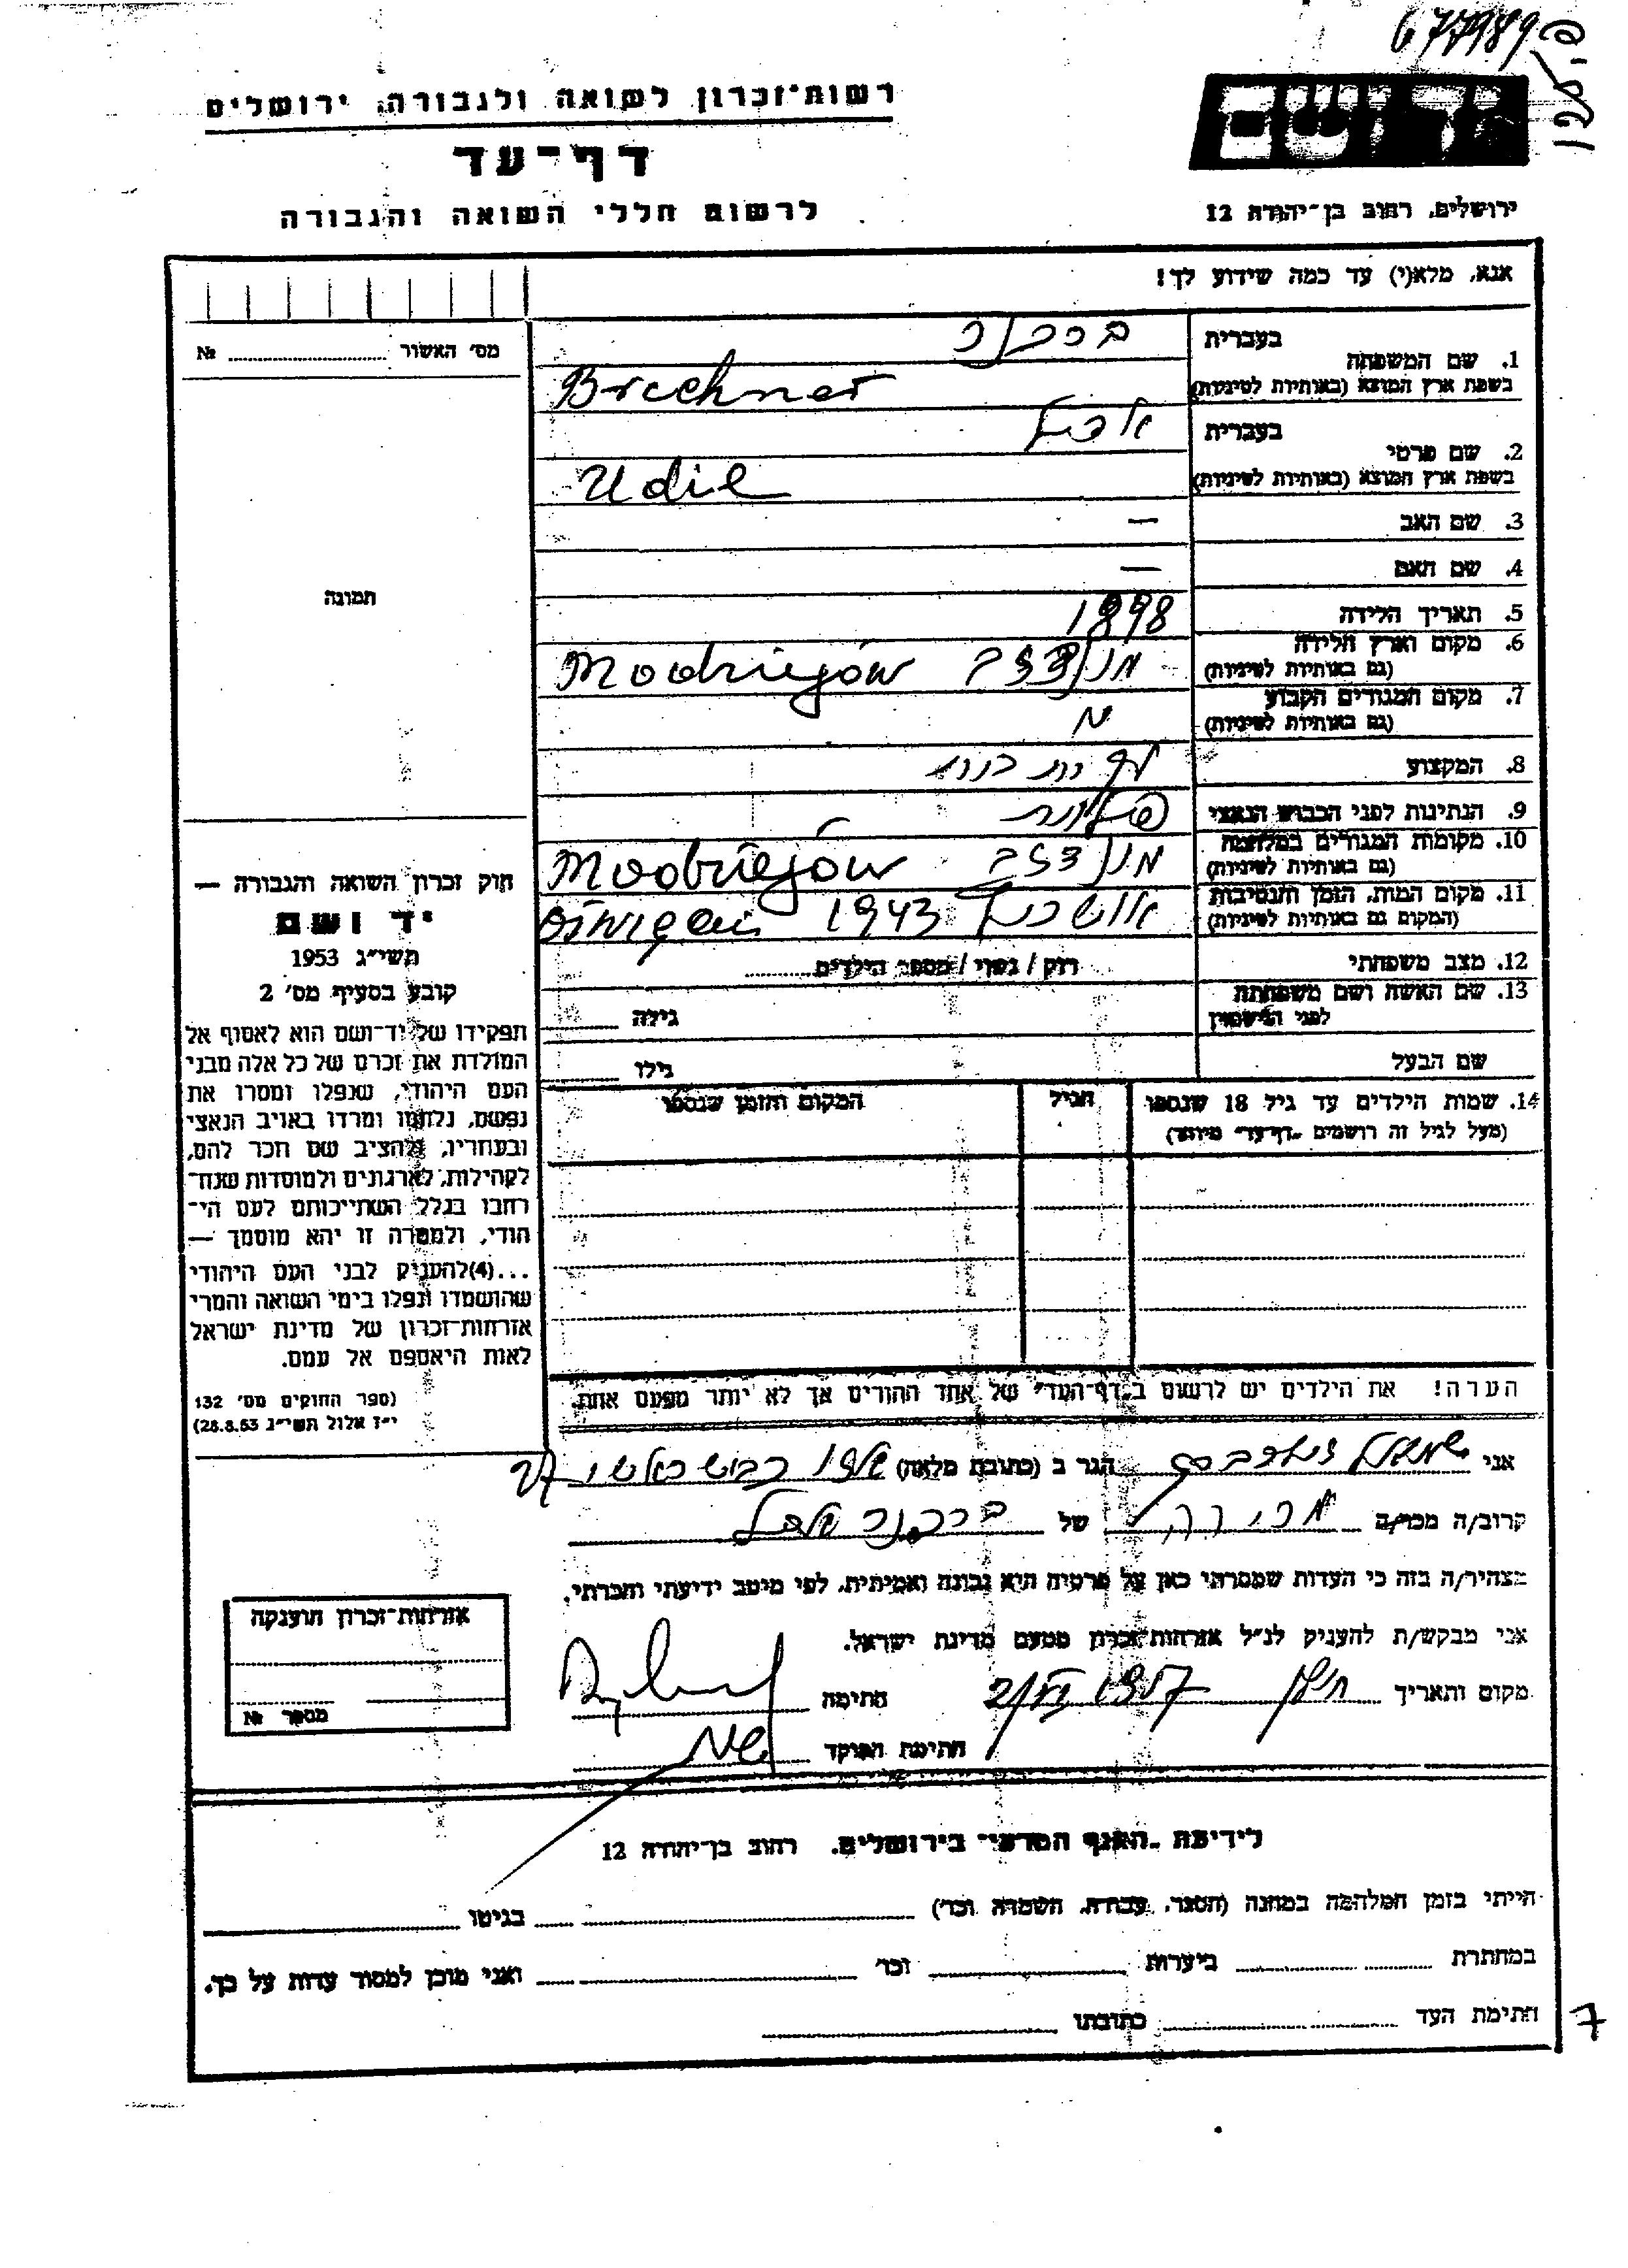 677989
רשות־זכרון לשואה ולגבורה, ירושלים
דף־עד
לרשום חללי השואה והגבורה
ירושלים, רחוב בן־יהודה 12
אנא, מלא(י) עד כמה שידוע לך!
מס׳ האשור № 
1. שם המשפחה
בעברית ברכנר
בשפת ארץ המוצא (באותיות לטיניות) Brechner
2. שם פרטי
בעברית
בשפת ארץ המוצא (באותיות לטיניות) Udil
3. שם האב —
4. שם האם —
5. תאריך הלידה 1898
6. מקום וארץ הלידה
(גם באותיות לטיניות) Modrzejów
7. מקום המגורים הקבוע
(גם באותיות לטיניות)
8. המקצוע
9. הנתינות לפני הכבוש הנאצי
10. מקומות המגורים במלחמה
(גם באותיות לטיניות) Modrzejów
11. מקום המות, הזמן והנסיבות
(המקום גם באותיות לטיניות) 1943 Oświęcim
12. מצב משפחתי רווק / נשוי / מספר הילדים
13. שם האשה ושם משפחתה
לפני הנישואין גילה
שם הבעל גילו
14. שמות הילדים עד גיל 18 שנספו
(מעל לגיל זה רושמים „דף־עד” מיוחד)
הגיל
המקום והזמן שנספו
הערה! את הילדים יש לרשום ב„דף־העד” של אחד ההורים אך לא יותר מפעם אחת.
תמונה
חוק זכרון השואה והגבורה —
יד ושם
תשי״ג 1953
קובע בסעיף מס׳ 2
תפקידו של יד־ושם הוא לאסוף אל
המולדת את זכרם של כל אלה מבני
העם היהודי, שנפלו ומסרו את
נפשם, נלחמו ומרדו באויב הנאצי
ובעוזריו, ולהציב שם וזכר להם,
לקהילות, לארגונים ולמוסדות שנח־
רבו בגלל השתייכותם לעם הי־
הודי, ולמטרה זו יהא מוסמך —
...(4) להעניק לבני העם היהודי
שהושמדו ונפלו בימי השואה והמרי
אזרחות־זכרון של מדינת ישראל
לאות היאספם אל עמם.
(ספר החוקים מס׳ 132
י״ז אלול תשי״ג 28.8.53)
אני שמואל הגר ב (כתובת מלאה)
קרוב/ה מכר/ה של ברכנר
מצהיר/ה בזה כי העדות שמסרתי כאן על פרטיה היא נכונה ואמיתית, לפי מיטב ידיעתי והכרתי.
אני מבקש/ת להעניק לנ״ל אזרחות־זכרון מטעם מדינת ישראל.
מקום ותאריך חיפה 1957 חתימה
חתימת הפוקד
אזרחות־זכרון הוענקה
מספר №
לידיעת „האגף המדעי” בירושלים, רחוב בן־יהודה 12
הייתי בזמן המלחמה במחנה (הסגר, עבודה, השמדה וכו׳) בגיטו
במחתרת ביערות וכו׳ ואני מוכן למסור עדות על כך.
חתימת העד כתובתו
7